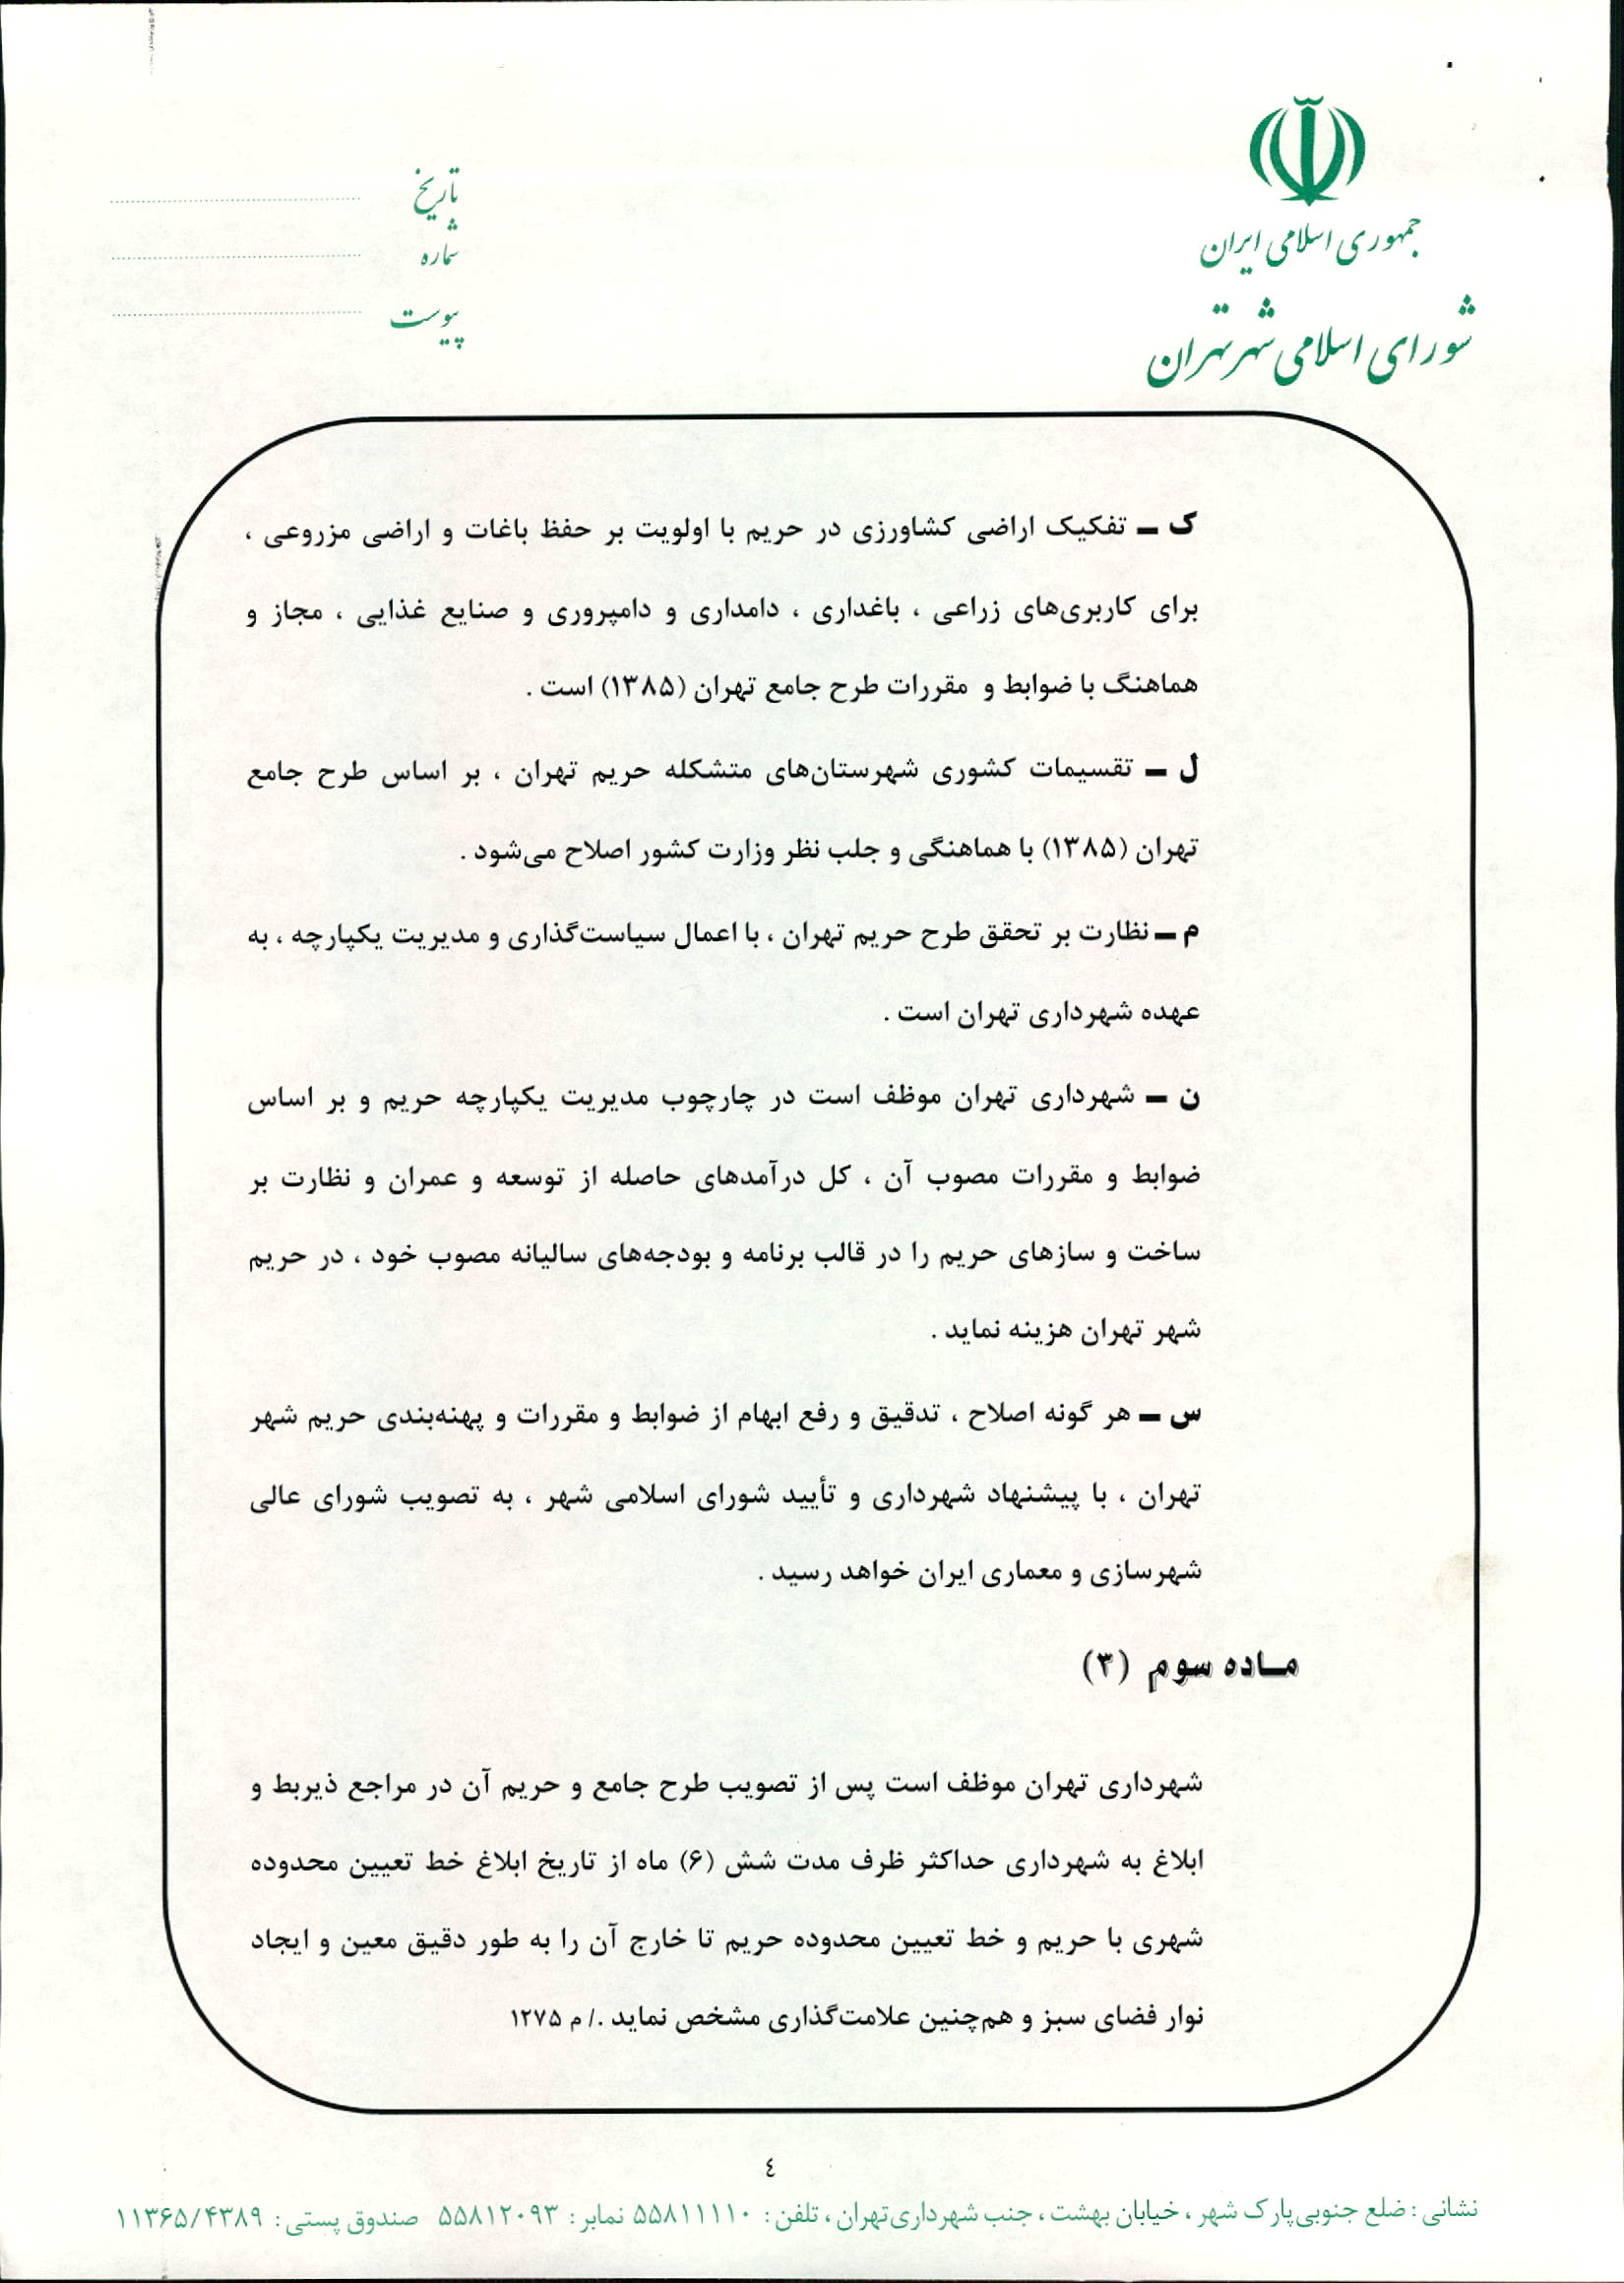 جمهوری اسلامی ایران
شورای اسلامی شهر تهران
تاریخ
شماره
پیوست
ک ـ تفکیک اراضی کشاورزی در حریم با اولویت بر حفظ باغات و اراضی مزروعی ،
برای کاربری‌های زراعی ، باغداری ، دامداری و دامپروری و صنایع غذایی ، مجاز و
هماهنگ با ضوابط و مقررات طرح جامع تهران (۱۳۸۵) است .
ل ـ تقسیمات کشوری شهرستان‌های متشکله حریم تهران ، بر اساس طرح جامع
تهران (۱۳۸۵) با هماهنگی و جلب نظر وزارت کشور اصلاح می‌شود .
م ـ نظارت بر تحقق طرح حریم تهران ، با اعمال سیاست‌گذاری و مدیریت یکپارچه ، به
عهده شهرداری تهران است .
ن ـ شهرداری تهران موظف است در چارچوب مدیریت یکپارچه حریم و بر اساس
ضوابط و مقررات مصوب آن ، کل درآمدهای حاصله از توسعه و عمران و نظارت بر
ساخت و سازهای حریم را در قالب برنامه و بودجه‌های سالیانه مصوب خود ، در حریم
شهر تهران هزینه نماید .
س ـ هر گونه اصلاح ، تدقیق و رفع ابهام از ضوابط و مقررات و پهنه‌بندی حریم شهر
تهران ، با پیشنهاد شهرداری و تأیید شورای اسلامی شهر ، به تصویب شورای عالی
شهرسازی و معماری ایران خواهد رسید .
مـاده سوم (۳)
شهرداری تهران موظف است پس از تصویب طرح جامع و حریم آن در مراجع ذیربط و
ابلاغ به شهرداری حداکثر ظرف مدت شش (۶) ماه از تاریخ ابلاغ خط تعیین محدوده
شهری با حریم و خط تعیین محدوده حریم تا خارج آن را به طور دقیق معین و ایجاد
نوار فضای سبز و هم‌چنین علامت‌گذاری مشخص نماید ./ م ۱۲۷۵
٤
نشانی : ضلع جنوبی‌پارک شهر ، خیابان بهشت ، جنب شهرداری‌تهران ، تلفن : ۵۵۸۱۱۱۱۰ نمابر : ۵۵۸۱۲۰۹۳ صندوق پستی : ۱۱۳۶۵/۴۳۸۹